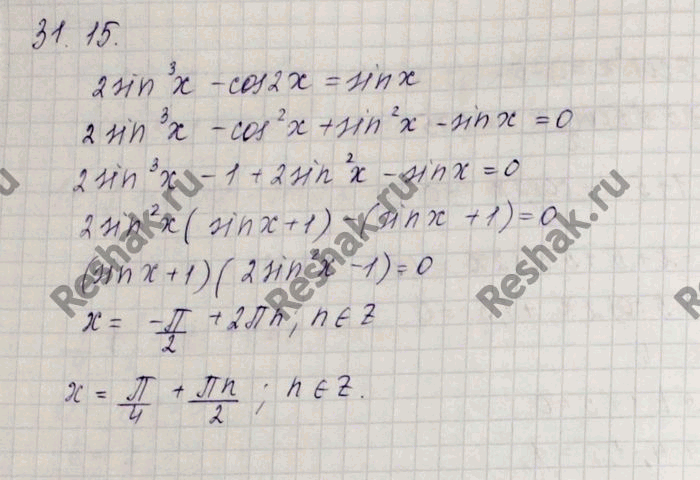 31.15.
2sin³x - cos2x = sinx
2sin³x - cos²x + sin²x - sinx = 0
2sin³x - 1 + 2sin²x - sinx = 0
2sin²x( sinx + 1) - (sinx + 1) = 0
(sinx + 1)( 2sin²x - 1) = 0
x = -π/2 + 2πn, n ∈ Z
x = π/4 + πn/2 ; n ∈ Z.
Reshak.ru
Reshak.ru
Reshak.ru